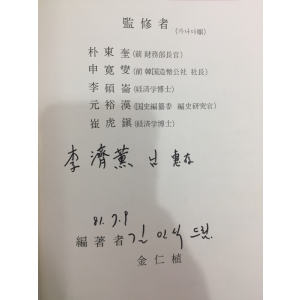 監修者
(가나다順)
朴東奎(前 財務部長官)
申寬燮(前 韓国造幣公社 社長)
李碩崙(経済学博士)
元裕漢(国史編纂委 編史研究官)
崔虎鎭(経済学博士)
李濟薰 님 惠存
81. 7. 9
編著者 김인식 드림
金仁植